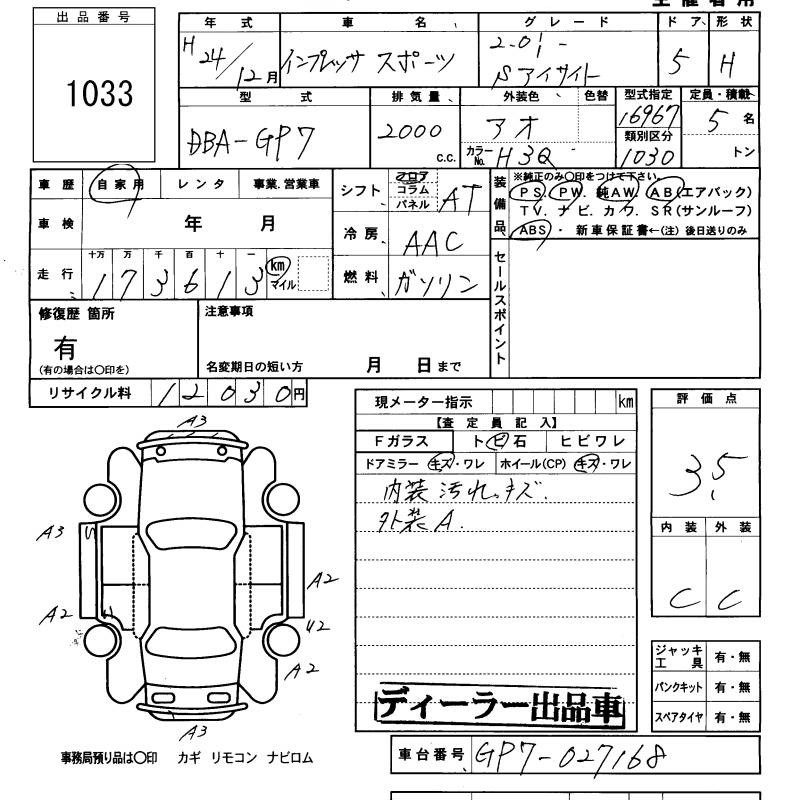 出品番号
1033
年式 車名 グレード ドア 形状
H24/12月 インプレッサ スポーツ 2.0i-Sアイサイト 5 H
型式 排気量 外装色 色替 型式指定 定員・積載
DBA-GP7 2000 c.c. アオ 16967 5名
カラーNo. H3Q 類別区分 1030 トン
車歴 自家用 レンタ 事業.営業車
車検 年 月
走行 十万 万 千 百 十 一
173613 km マイル
シフト フロア コラム パネル AT
冷房 AAC
燃料 ガソリン
装備品 ※純正のみ〇印をつけて下さい。
PS. PW. 純AW. AB(エアバック)
TV. ナビ. カワ. SR(サンルーフ)
ABS ・ 新車保証書←(注) 後日送りのみ
セールスポイント
修復歴 箇所
有
(有の場合は〇印を)
注意事項
名変期日の短い方 月 日まで
リサイクル料 12030円
現メーター指示 km
【査定員記入】
Fガラス トビ石 ヒビワレ
ドアミラー キズ・ワレ ホイール(CP) キズ・ワレ
内装汚れ、キズ.
外装A.
評価点
3.5
内装 外装
C C
A3
A3
A2
A2
U2
A2
A3
ジャッキ工具 有・無
パンクキット 有・無
スペアタイヤ 有・無
ディーラー出品車
事務局預り品は〇印 カギ リモコン ナビロム
車台番号 GP7-027168